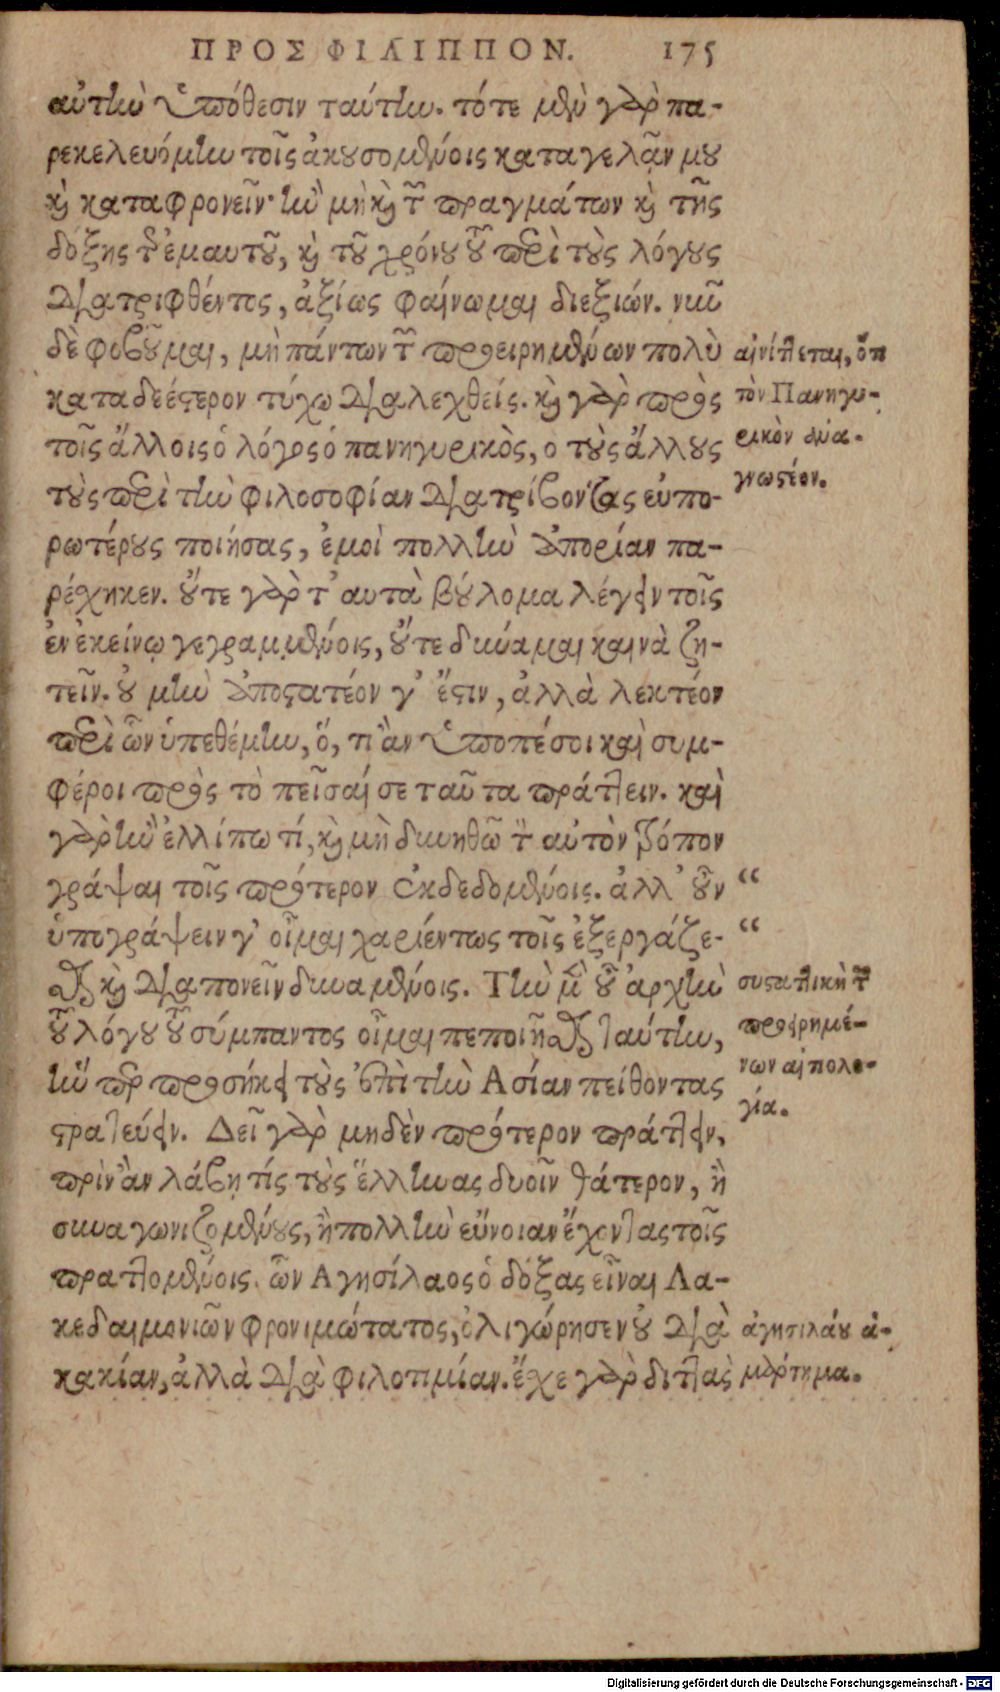 ΠΡΟΣ ΦΙΛΙΠΠΟΝ. 175
αὐτὴν ὑπόθεσιν ταύτην. τότε μὲν γὰρ πα-
ρεκελευόμην τοῖς ἀκουσομένοις καταγελᾶν μου
καὶ καταφρονεῖν· ἢν μὴ καὶ τῶν πραγμάτων καὶ τῆς
δόξης τῆς ἐμαυτοῦ, καὶ τοῦ χρόνου τοῦ περὶ τοὺς λόγους
διατριφθέντος, ἀξίως φαίνωμαι διεξιών. νῦν
δὲ φοβοῦμαι, μὴ πάντων τῶν προειρημένων πολὺ
καταδεέστερον τύχω διαλεχθείς. καὶ γὰρ πρὸς
τοῖς ἄλλοις ὁ λόγος ὁ πανηγυρικὸς, ο τοὺς ἄλλους
τοὺς περὶ τὴν φιλοσοφίαν διατρίβοντας εὐπο-
ρωτέρους ποιήσας, ἐμοὶ πολλὴν ἀπορίαν πα-
ρέχηκεν. οὔτε γὰρ τ' αυτὰ βούλομα λέγειν τοῖς
ἐν ἐκείνῳ γεγραμμένοις, οὔτε δύναμαι καινὰ ζη-
τεῖν. οὐ μὴν ἀποστατέον γ' ἔστιν, ἀλλὰ λεκτέον
περὶ ὧν ὑπεθέμην, ὅ, τι ἂν ὑποπέσοι καὶ συμ-
φέροι πρὸς τὸ πεῖσαί σε ταῦτα πράττειν. καὶ
γὰρ ἢν ἐλλίπω τί, καὶ μὴ δυνηθῶ τὸν αὐτὸν τρόπον
γράψαι τοῖς πρότερον ἐκδεδομένοις. ἀλλ' οὖν “
ὑπογράψειν γ' οἶμαι χαριέντως τοῖς ἐξεργάζε- “
σθαι καὶ διαπονεῖν δυναμένοις. Τὴν μὲν οὖν ἀρχὴν
τοῦ λόγου τοῦ σύμπαντος οἶμαι πεποιῆσθαι ταύτην,
ἥν περ προσήκει τοὺς ἐπὶ τὴν Ασίαν πείθοντας
στρατεύειν. Δεῖ γὰρ μηδὲν πρότερον πράττειν,
πρὶν ἂν λάβῃ τίς τοὺς ἕλληνας δυοῖν θάτερον, ἢ
συναγωνιζομένους, ἢ πολλὴν εὔνοιαν ἔχοντας τοῖς
πραττομένοις. ὧν Αγησίλαος ὁ δόξας εἶναι Λα-
κεδαιμονίων φρονιμώτατος, ὀλιγώρησεν οὐ διὰ
κακίαν, ἀλλὰ διὰ φιλοτιμίαν. ἔχε γὰρ διττὰς
αἰνίττεται, ὅτι
τὸν Πανηγυ-
ρικὸν ἀνα-
γνωστέον.
συστατικὴ τῶν
προειρημέ-
νων αἰπολο-
γία.
ἀγησιλάου ἁ-
μάρτημα.
Digitalisierung gefördert durch die Deutsche Forschungsgemeinschaft - DFG